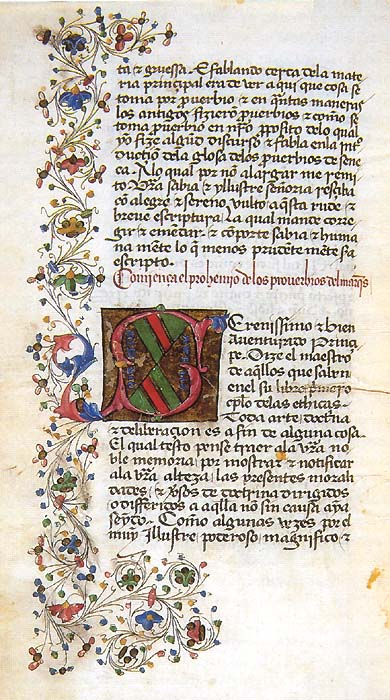 ta & gruessa. E fablando cerca dela mate
ria principal era de ver a qui que cosa se
toma por prouerbio & en quãtas maneras
los antigos fizierõ prouerbios & como se
toma prouerbio en nrõ proposito delo qual
yo fize algũd discurso & fabla en la intro
duciõ dela glosa delos prouerbios de sene
ca. A lo qual por nõ alargar me remi
to Vrã sabia & yllustre señoria resciba
cõ alegre & sereno vulto aq̃sta rude &
breue escriptura. La qual mande corre
gir & emẽdar & cõporte sabia & huma
na mẽte lo q̃ menos prudẽte mẽte fa
escripto.
Comiença el prohemio de los prouerbios del marq̃s
Serenissimo & bien
Auenturado Prinçi
pe. Dize el maestro
de aq̃llos que saben
en el su libro primero
cplo delas ethicas.
Toda arte doctrina
& deliberacion es a fin de alguna cosa.
El qual testo pense traer ala vrã no
ble memoria por mostrar & notificar
ala vrã alteza las presentes morali
dades & versos de doctrina dirigidos
o differidos a aq̃lla nõ sin causa aya
septo. Como algunas vezes por el
muy Illustre poderoso magnifico &